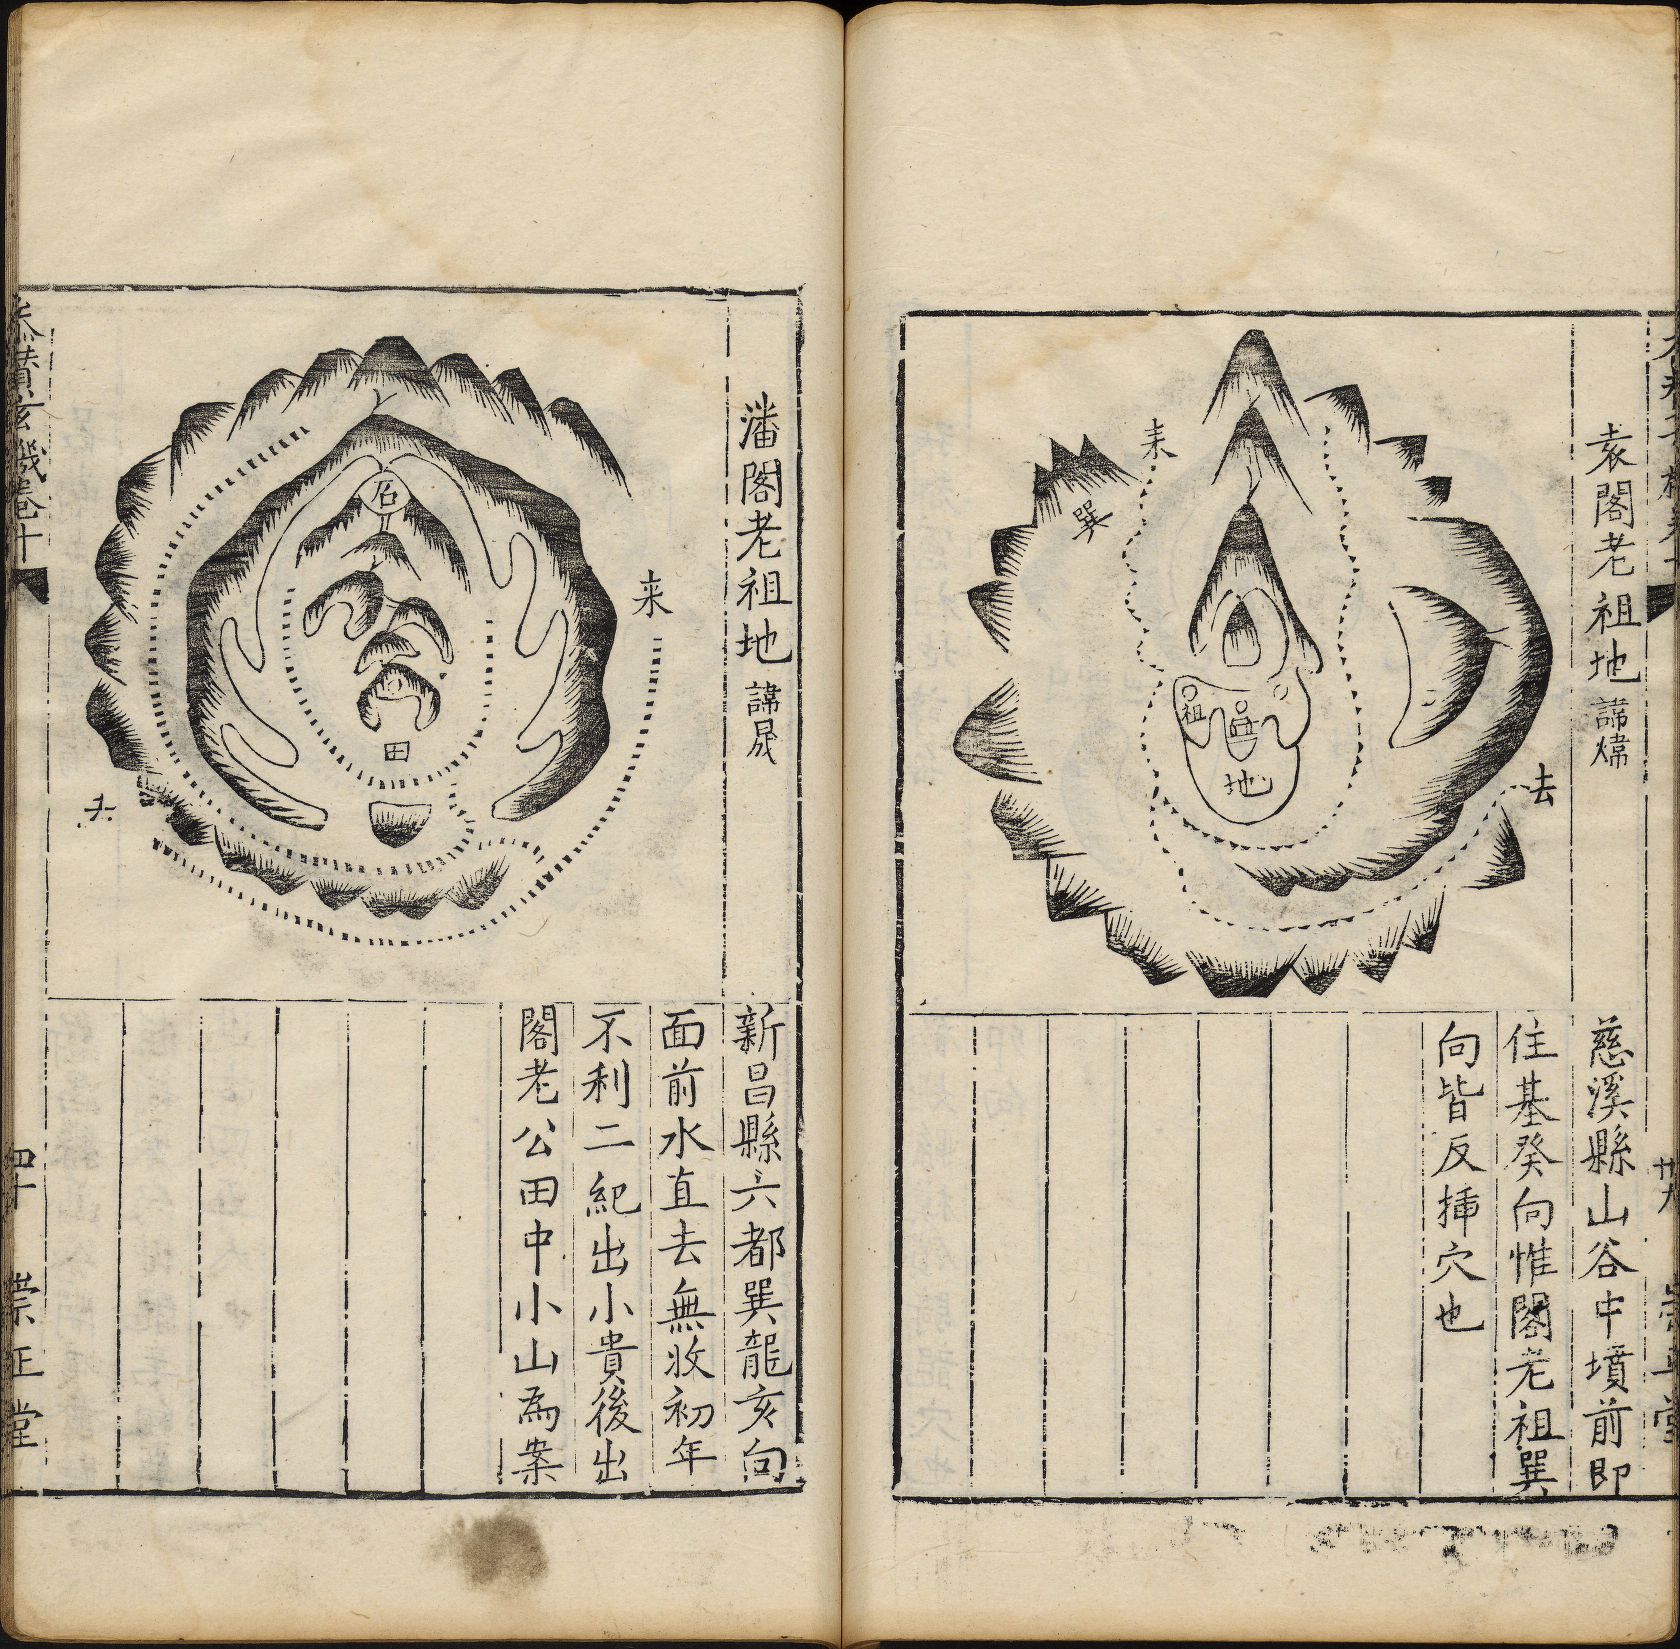 袁閣老祖地 諱煒
来
巽
去
祖
地
慈溪縣山谷中墳前即
住基癸向惟閣老祖巽
向皆反揷穴也
廿九
潘閣老祖地 諱晟
来
去
石
田
新昌縣六都巽龍亥向
面前水直去無收初年
不利二紀出小貴後出
閣老公田中小山為案
玄機卷十
四十
崇正堂